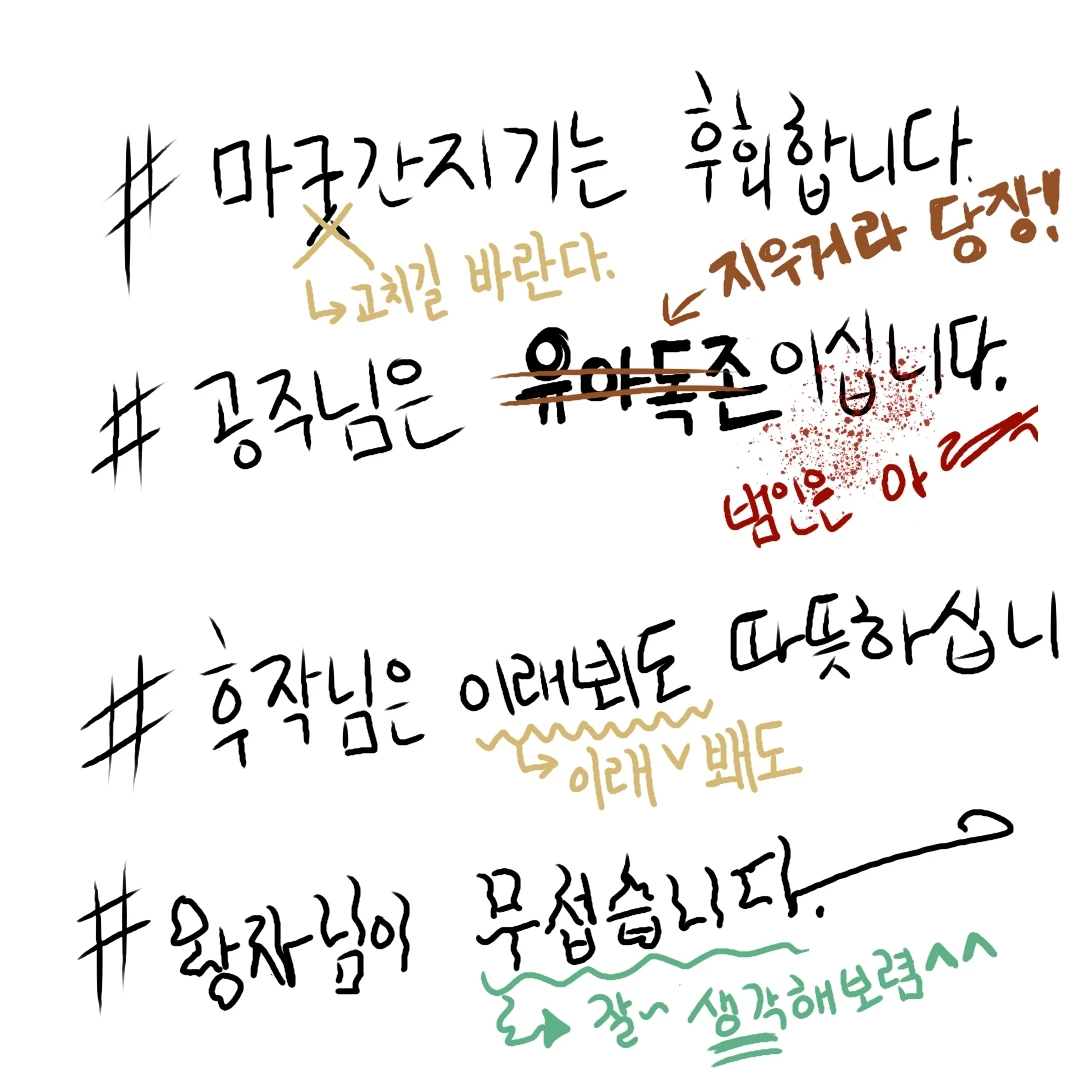 # 마굿간지기는 후회합니다.
→고치길 바란다.
지우거라 당장!
# 공주님은 유아독존이십니다.
범인은 아
# 후작님은 이래뵈도 따뜻하십니
→이래∨봬도
# 왕자님이 무섭습니다.
→잘~ 생각해보렴^^